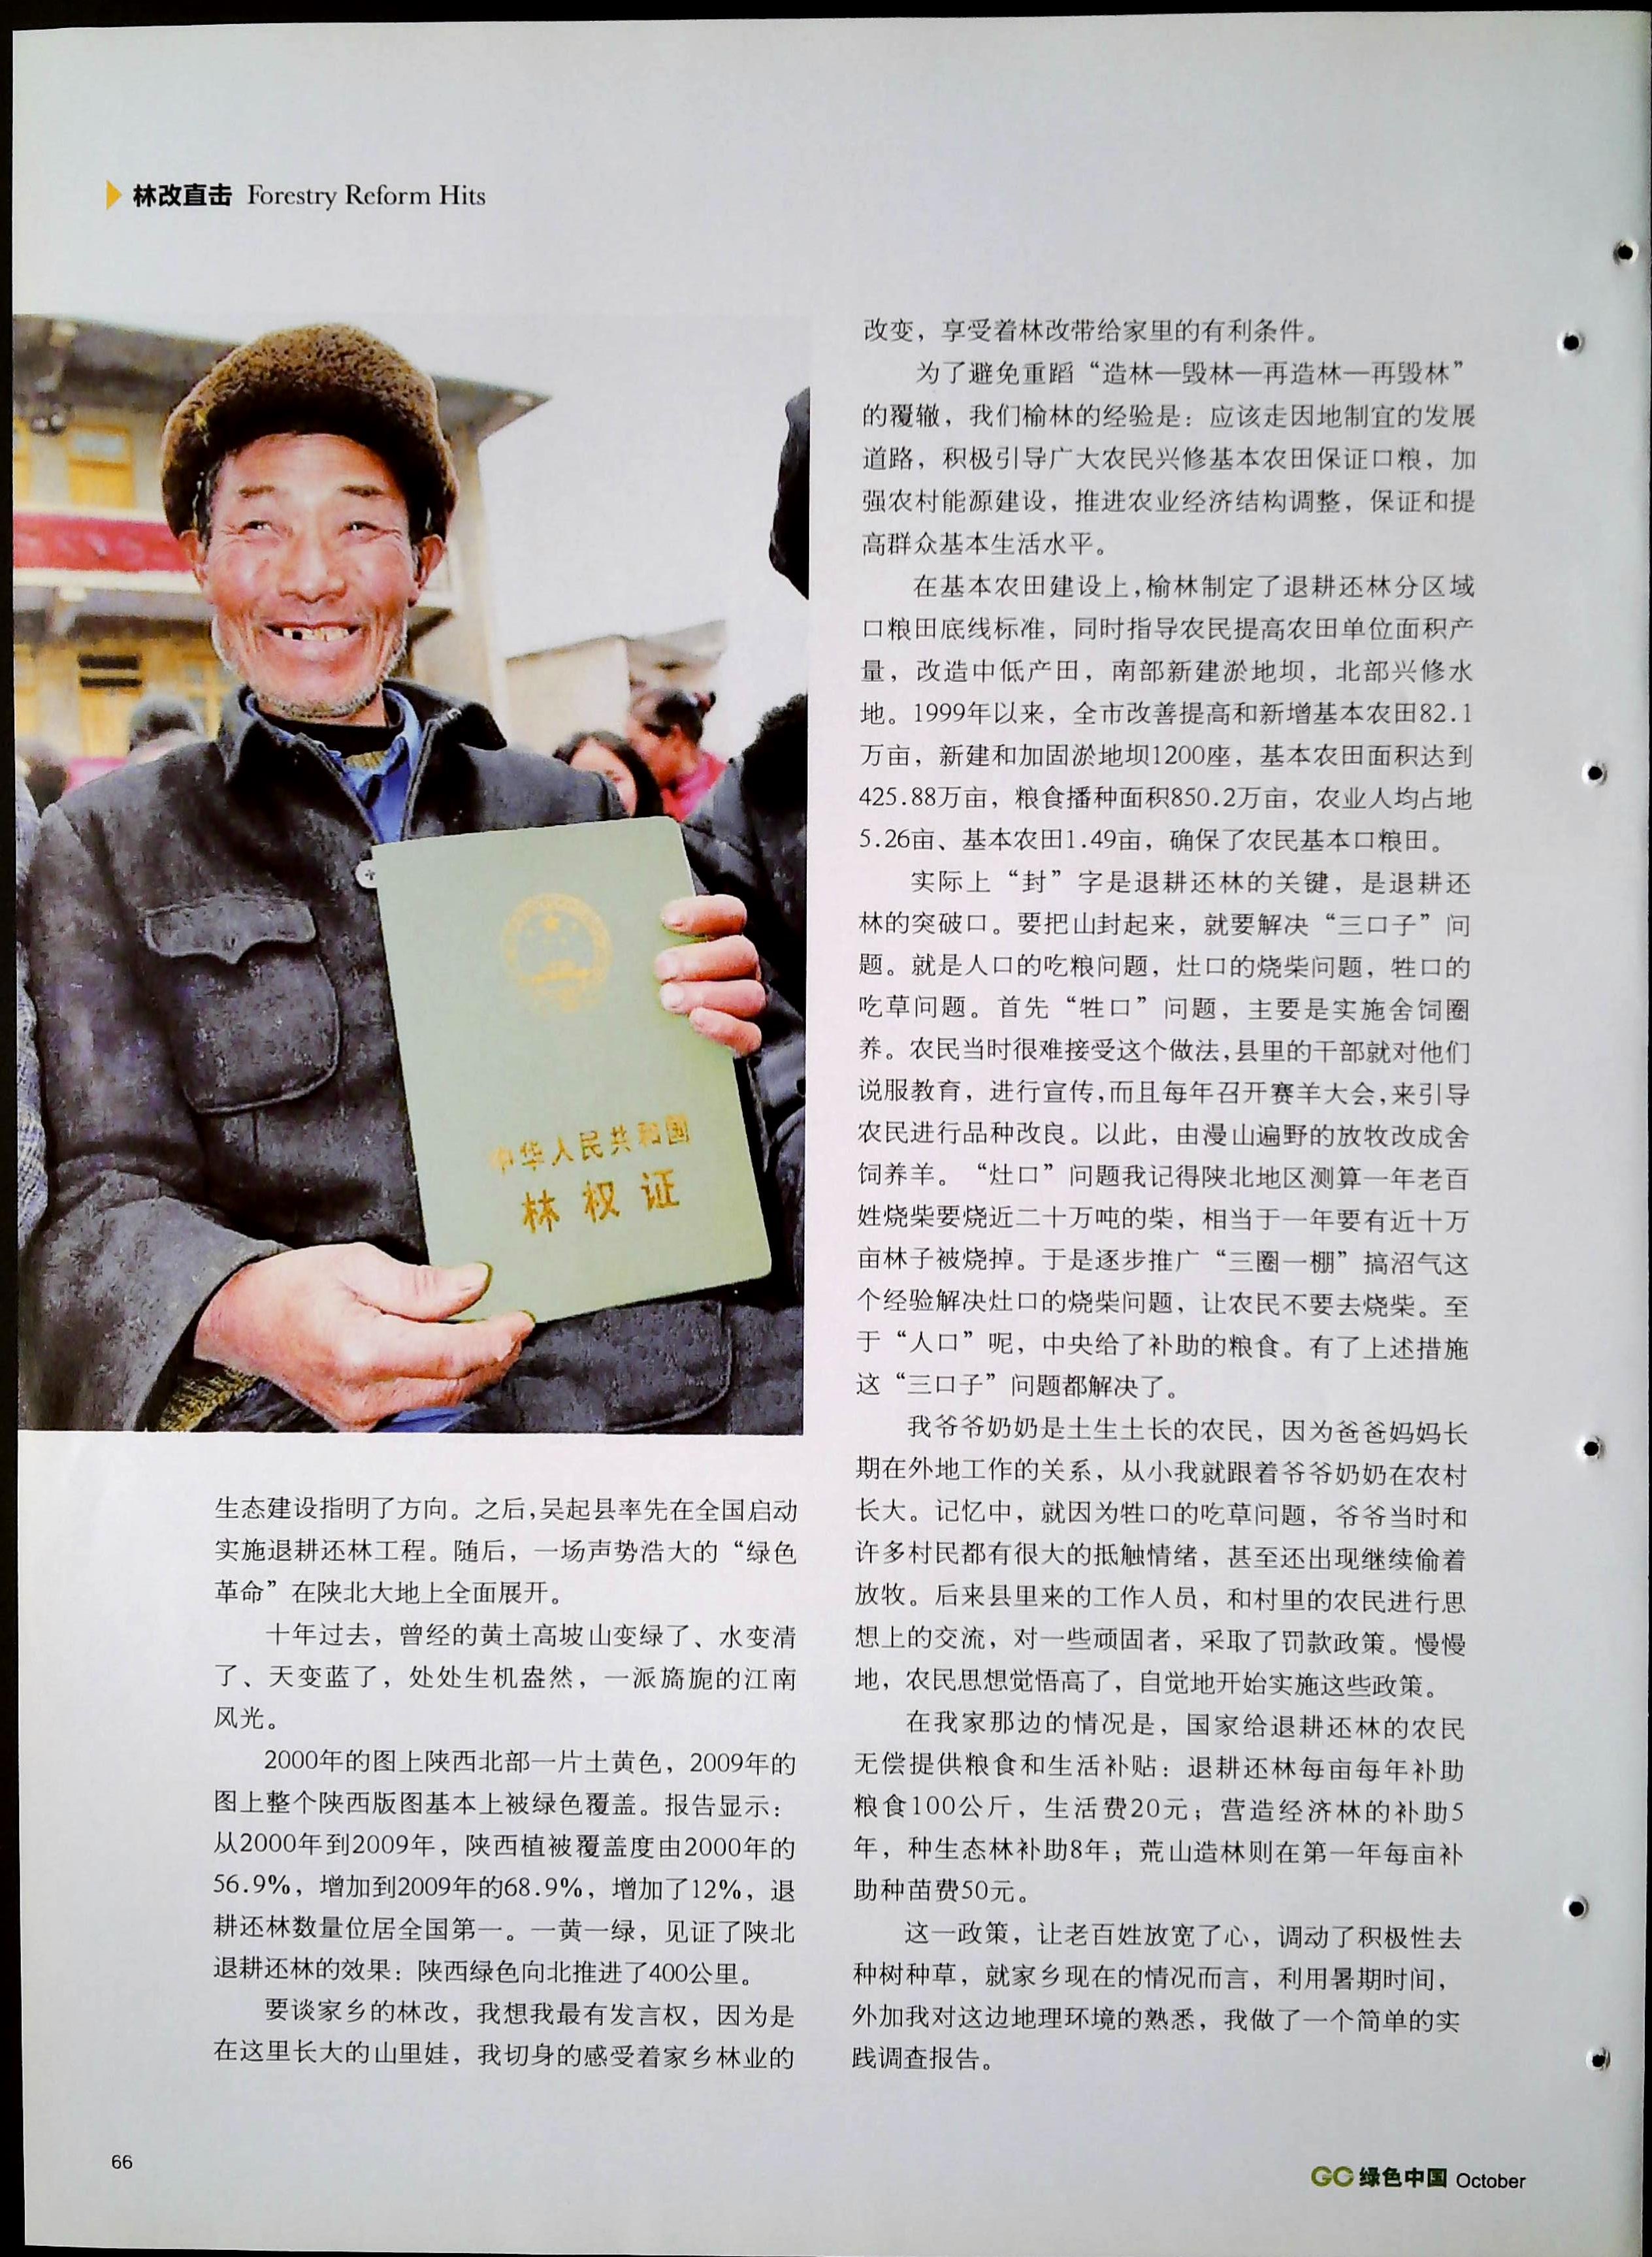 林改直击 Forestry Reform Hits
中华人民共和国
林权证
生态建设指明了方向。之后,吴起县率先在全国启动
实施退耕还林工程。随后，一场声势浩大的“绿色
革命”在陕北大地上全面展开。
十年过去，曾经的黄土高坡山变绿了、水变清
了、天变蓝了，处处生机盎然，一派旖旎的江南
风光。
2000年的图上陕西北部一片土黄色，2009年的
图上整个陕西版图基本上被绿色覆盖。报告显示：
从2000年到2009年，陕西植被覆盖度由2000年的
56.9%，增加到2009年的68.9%，增加了12%，退
耕还林数量位居全国第一。一黄一绿，见证了陕北
退耕还林的效果：陕西绿色向北推进了400公里。
要谈家乡的林改，我想我最有发言权，因为是
在这里长大的山里娃，我切身的感受着家乡林业的
改变，享受着林改带给家里的有利条件。
为了避免重蹈“造林—毁林—再造林—再毁林”
的覆辙，我们榆林的经验是：应该走因地制宜的发展
道路，积极引导广大农民兴修基本农田保证口粮，加
强农村能源建设，推进农业经济结构调整，保证和提
高群众基本生活水平。
在基本农田建设上,榆林制定了退耕还林分区域
口粮田底线标准，同时指导农民提高农田单位面积产
量，改造中低产田，南部新建淤地坝，北部兴修水
地。1999年以来，全市改善提高和新增基本农田82.1
万亩，新建和加固淤地坝1200座，基本农田面积达到
425.88万亩，粮食播种面积850.2万亩，农业人均占地
5.26亩、基本农田1.49亩，确保了农民基本口粮田。
实际上“封”字是退耕还林的关键，是退耕还
林的突破口。要把山封起来，就要解决“三口子”问
题。就是人口的吃粮问题，灶口的烧柴问题，牲口的
吃草问题。首先“牲口”问题，主要是实施舍饲圈
养。农民当时很难接受这个做法,县里的干部就对他们
说服教育，进行宣传,而且每年召开赛羊大会,来引导
农民进行品种改良。以此，由漫山遍野的放牧改成舍
饲养羊。“灶口”问题我记得陕北地区测算一年老百
姓烧柴要烧近二十万吨的柴，相当于一年要有近十万
亩林子被烧掉。于是逐步推广“三圈一棚”搞沼气这
个经验解决灶口的烧柴问题，让农民不要去烧柴。至
于“人口”呢，中央给了补助的粮食。有了上述措施
这“三口子”问题都解决了。
我爷爷奶奶是土生土长的农民，因为爸爸妈妈长
期在外地工作的关系，从小我就跟着爷爷奶奶在农村
长大。记忆中，就因为牲口的吃草问题，爷爷当时和
许多村民都有很大的抵触情绪，甚至还出现继续偷着
放牧。后来县里来的工作人员，和村里的农民进行思
想上的交流，对一些顽固者，采取了罚款政策。慢慢
地，农民思想觉悟高了，自觉地开始实施这些政策。
在我家那边的情况是，国家给退耕还林的农民
无偿提供粮食和生活补贴：退耕还林每亩每年补助
粮食100公斤，生活费20元；营造经济林的补助5
年，种生态林补助8年；荒山造林则在第一年每亩补
助种苗费50元。
这一政策，让老百姓放宽了心，调动了积极性去
种树种草，就家乡现在的情况而言，利用暑期时间，
外加我对这边地理环境的熟悉，我做了一个简单的实
践调查报告。
66
GC 绿色中国 October